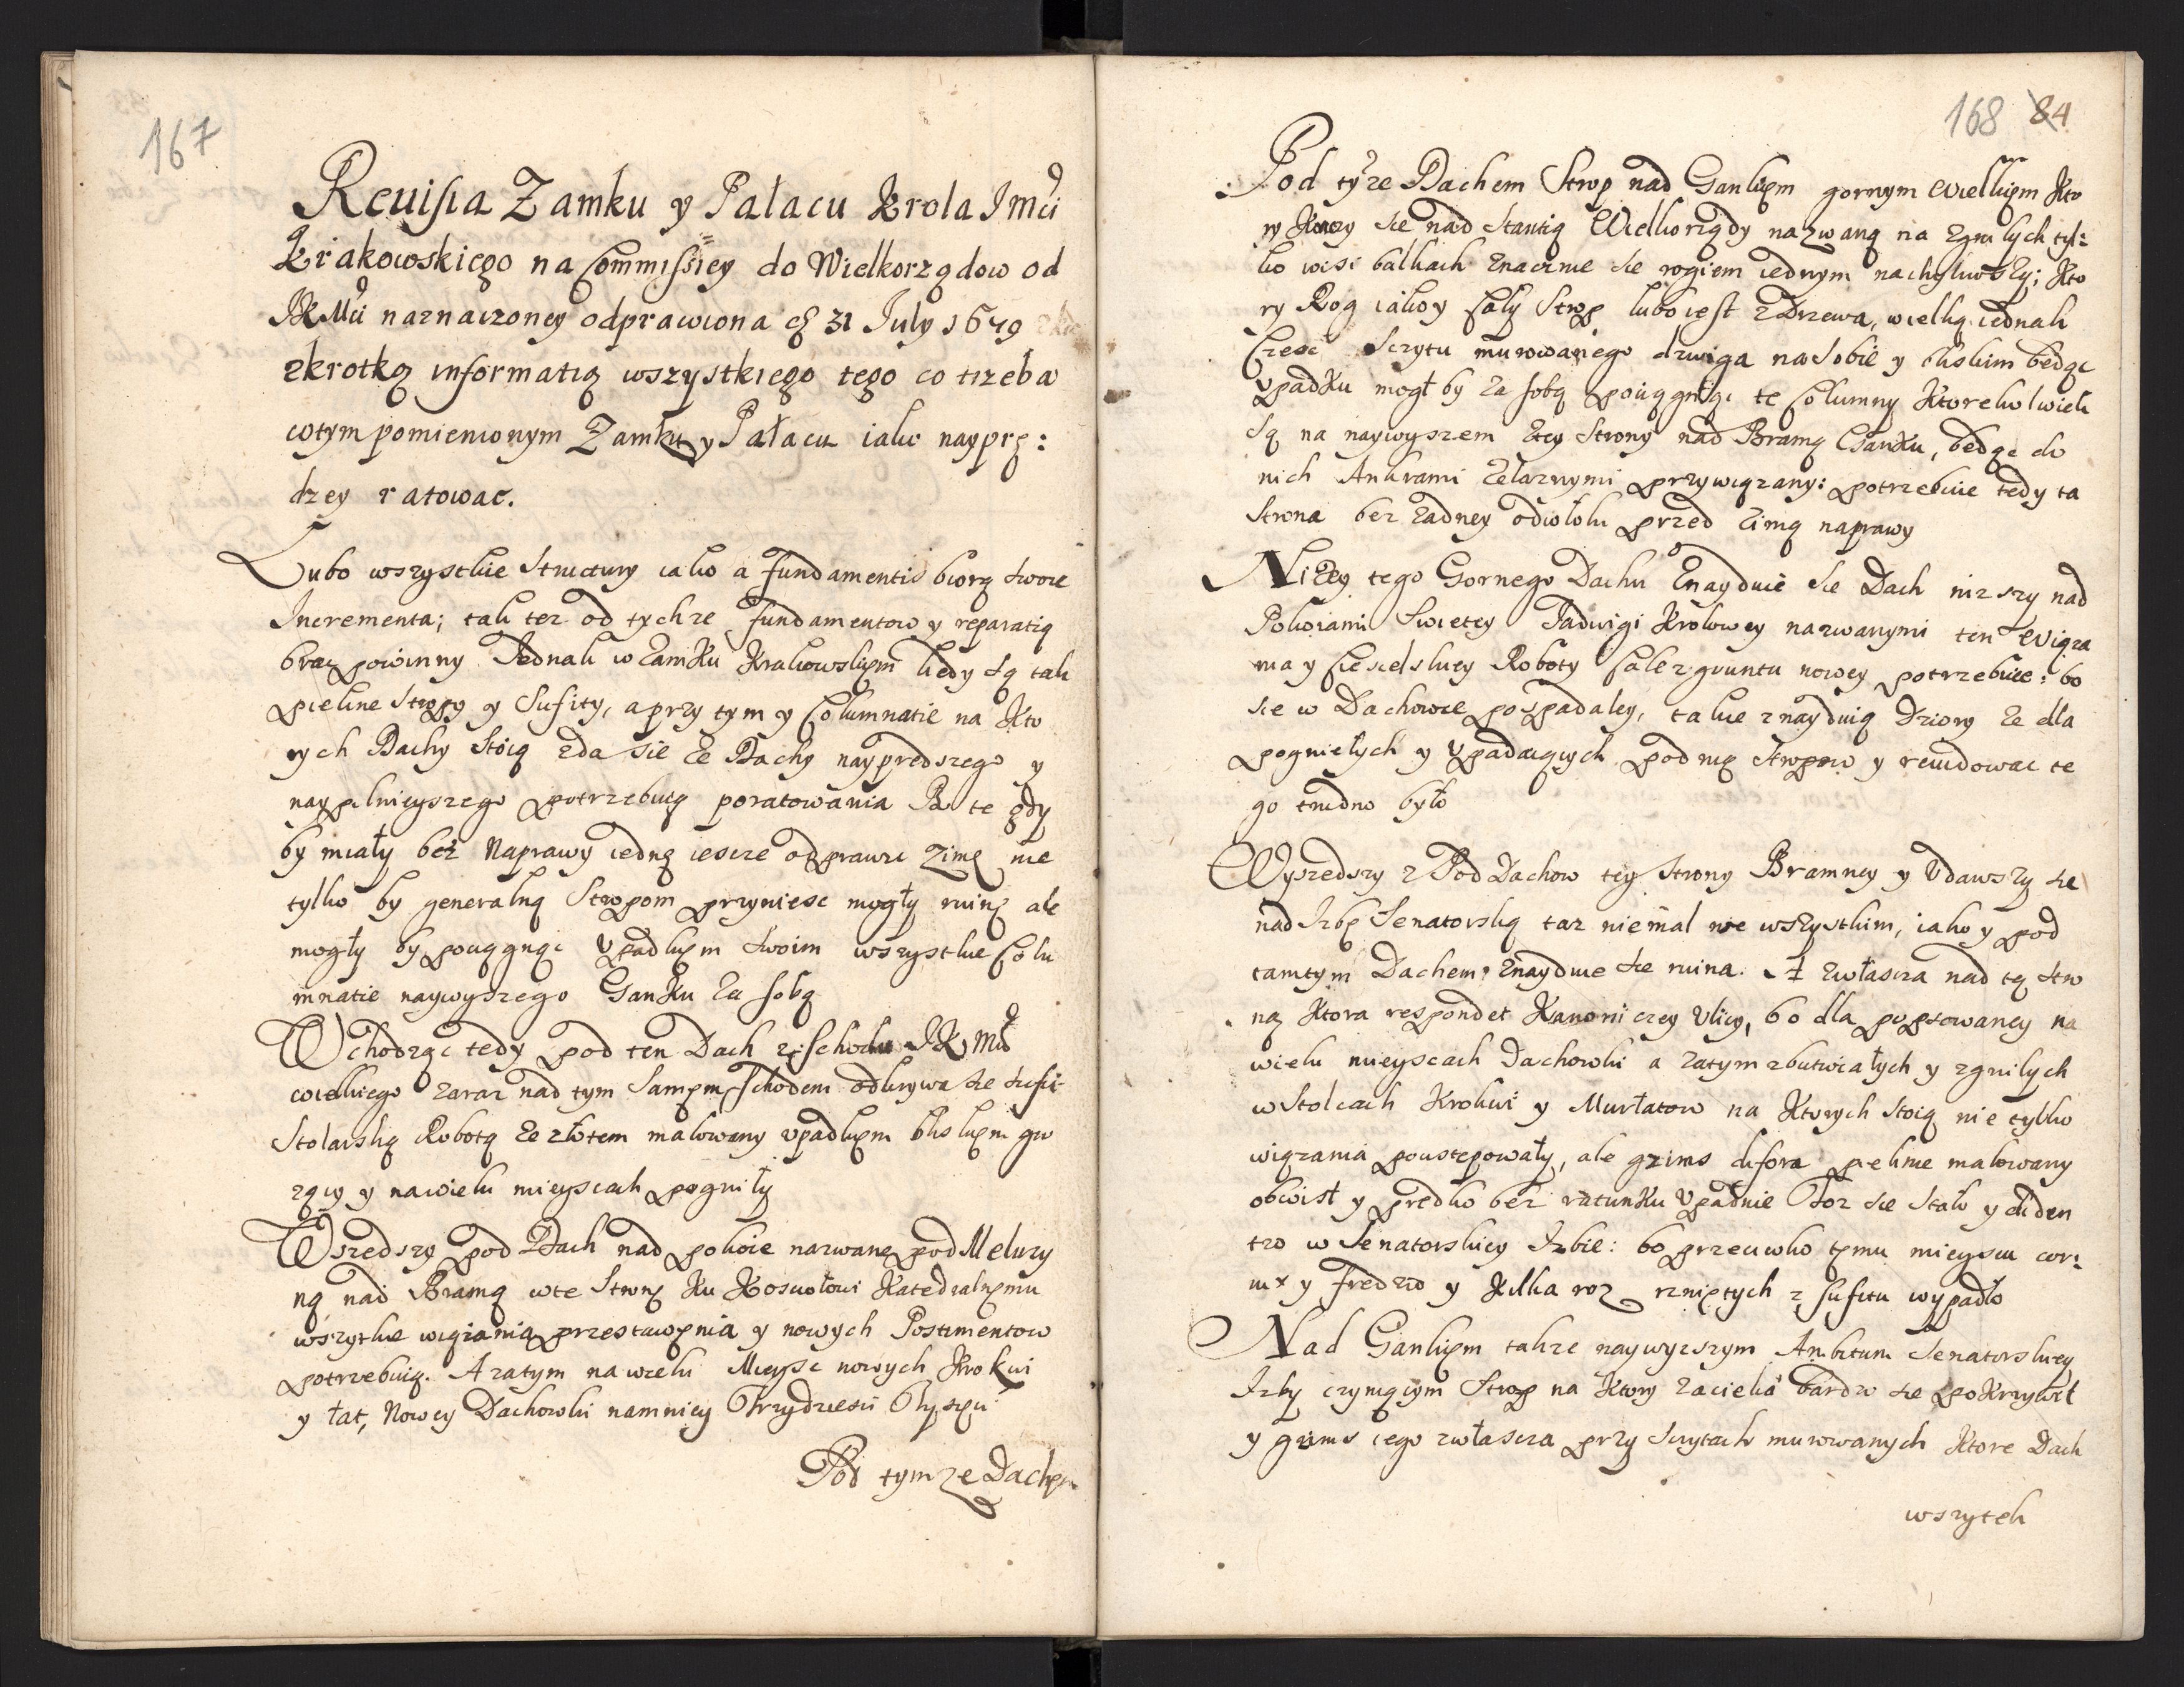 167
Reuisia Zamku y Pałacu Krola Jmci
Krakowskiego na Commissiey do Wielkorządow od
JKMci naznaczoney odprawiona 31 July 1649
zkrotką informatią wszystkiego tego co trzeba
wtym pomienionym Zamku y Pałacu iako nayprę:
dzey ratowac.
Lubo wszystkie Structury iako a fundamentis biorą swoie
Incrementa; tak tez od tychze fundamentow y reparatią
brac powinny Jednak w Zamku Krakowskiem kiedy są tak
piekne Stropy y Sufity, a przy tym y Columnatie na Kto
rych Dachy Stoią zda sie ze Dachy nayprędszego y
naypilnieyszego potrzebuią poratowania Bo te gdy
by miały bez Naprawy iedną iescze odprawic zimę nie
tylko by generalną Stropom przyniesc mogły ruinę ale
mogły by pociągnąc Vpadkiem swoim wszystkie Colu
mnatie naywyszego GanKu za sobą
Wchodząc tedy pod ten Dach z Schodu JKMci
wielkiego zaraz nad tym Samem Schodem odkrywa sie sufit
Stolarską Robotą ze złotem malowany vpadkiem bliskiem gro
zący y nawielu mieyscach pogniły
Wszedszy pod Dach nad pokoie nazwane pod Melury
ną nad Bramą wte Stronę Ku Kosciołowi Katedralnemu
wszytkie wiązania przestawienia y nowych Postimentow
potrzebuią. A zatym na wielu Mieysc nowych Krokwi
y łat, Nowey Dachowki namniey Trzydziesci Tysięcy
Pod tymze Dachem
168 84
Pod tymze Dachem Strop nad Gankiem gornym Wielkiem Kto
ry Konczy sie nad Stantią Wielkorządy nazwaną na zgniłych tyl:
ko wisi balkach znacznie sie rogiem iednym nachyliwszy; Kto
ry Rog iako y Cały Strop lubo iest z Drzewa, wielką iednak
Czesc Sczytu murowanego dzwiga na Sobie y bliskim będąc
vpadKu mogł by za sobą pociągnąc te Columny Ktorekolwiek
są na naywyszem ztey Strony nad Bramą GanKu, będąc do
nich Ankrami zelaznymi przywiązany: potrzebuie tedy ta
Strona bez zadney odwłoki przed zimą naprawy
Nizey tego Gornego Dachu znayduie sie Dach nizszy nad
Pokoiami Swietey Jadwigi Krolowey nazwanymi ten Wiąza
nia y Ciesielskiey Roboty Cale z gruntu nowey potrzebuie: bo
sie w Dachowce pospadaley, takie znayduią Dziory ze dla
pogniełych y Vpadaiących pod nią Stropow y rewidowac te
go trudno było
Wyszedszy z Pod Dachow tey Strony Bramney y Vdawszy sie
nad Izbę Senatorską taz niemal we wszystkim, iako y pod
tamtym Dachem znayduie sie ruina. A zwłascza nad tą stro
ną Ktora respondet Kanoniczey Vlicy, bo dla popsowaney na
wielu mieyscach Dachowki a zatym zbutwiałych y zgniłych
w Stolcach Krokwi y Murłatow na Ktorych Stoią nie tylko
wiązania poustępowały, ale gzims de fora pieknie malowany
obwisł y prędko bez ratunKu Vpadnie Toz sie Stało y di den
tro w Senatorskiey Izbie: bo przeciwko temu mieyscu cor:
nix y fredzio y Kilka roz rzniętych z sufitu wypadło
Nad Gankiem takze naywyzszym Ambitum Senatorskiey
Izby czyniącym Strop na Ktory zacieka bardzo sie pokrzywił
y gzims iego zwłascza przy Sczytach murowanych Ktore Dach
wszytek